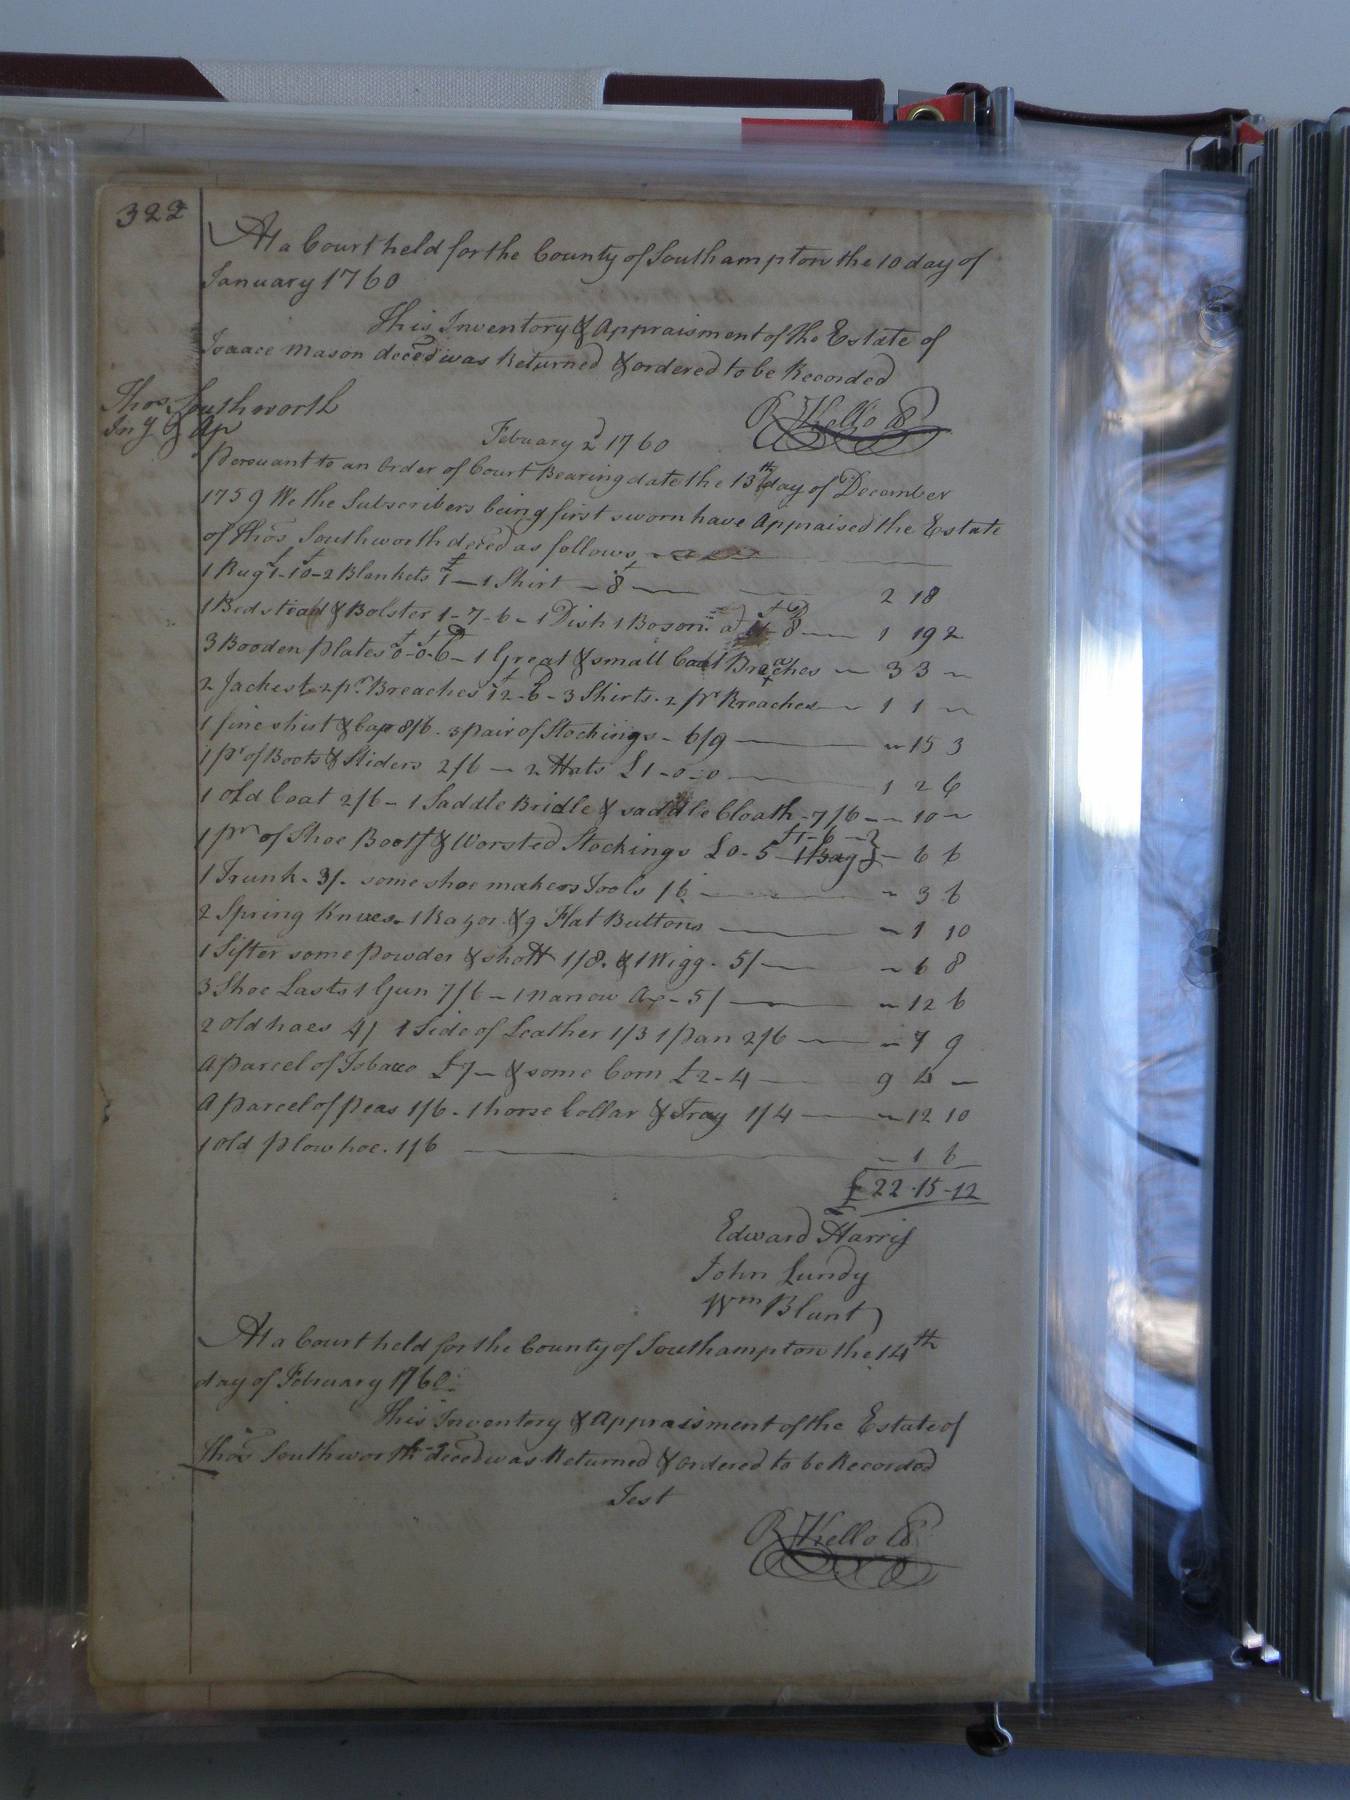 322
At a Court held for the County of Southampton the 10 day of
January 1760
This Inventory & Appraisment of the Estate of
Isaace Mason deced was Returned & ordered to be Recorded
R Kello Cl
Thos Southworth
Inv & Ap
Febuary 2d 1760
persuant to an Order of Court Bearing date the 13th day of December
1759 We the Subscribers being first sworn have Appraised the Estate
of Thos Southworth deced as follows
1 Rug 1-10-2 Blankets £1 — 1 Shirt — 8 — 2 18
1 Bedstead & Bolster 1-7-6 - 1 Dish 1 Bason 8 — 1 19 2
3 Booden plates 0-0-6 - 1 Great & small Coat Breaches — 3 3 ~
2 Jackest 2 pr Breaches 12-6 - 3 Shirts. 2 pr Breaches — 1 1 ~
1 fine shirt & Cap 8/6 - 3 pair of Stockings - 6/9 — ~ 15 3
1 pr of Boots & Sliders 2/6 — 2 Hats £1-0-0 — 1 2 6
1 Old Coat 2/6 - 1 Saddle Bridle & saddle Cloath - 7/6 — ~ 10 ~
1 pr of Shoe Boots & Worsted Stockings £0-5 - 1 Bag £1-6 — 6 6
1 Trunk. 3/. some shoe makers Tools /6 — ~ 3 6
2 Spring Knives. 1 Razor & 9 Flat Buttons — ~ 1 10
1 Sifter some powder & shott 1/8. & 1 Wigg - 5/ — ~ 6 8
3 Shoe Lasts 1 Gun 7/6 - 1 Narrow Ax - 5/ — ~ 12 6
2 old hoes 4/ 1 Side of Leather 1/3 1 pan 2/6 — ~ 7 9
A parcel of Tobacco £7 - & some Corn £2-4 — 9 4 —
A parcel of peas 1/6 - 1 horse Collar & Tray 1/4 — ~ 12 10
1 old plow hoe. 1/6 — ~ 1 6
£ 22-15-12
Edward Harris
John Lundy
Wm Blunt
At a Court held for the County of Southampton the 14th
day of February 1760
This Inventory & Appraisment of the Estate of
Thos Southworth deced was Returned & ordered to be Recorded
Test
R Kello Cl